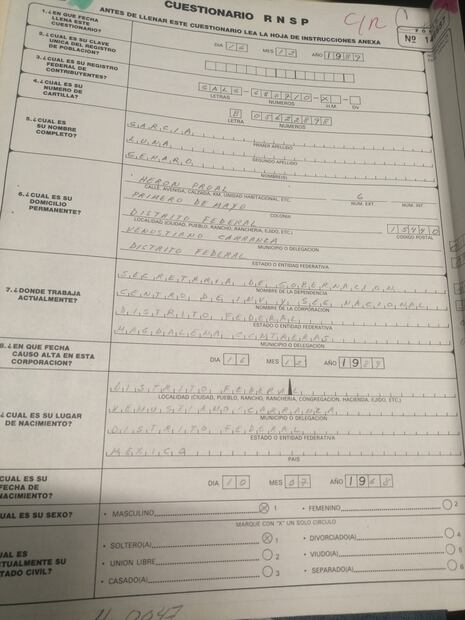 CUESTIONARIO R N S P
C/R
ANTES DE LLENAR ESTE CUESTIONARIO LEA LA HOJA DE INSTRUCCIONES ANEXA
Nº 1
1.-¿EN QUE FECHA LLENA ESTE CUESTIONARIO?
DIA 16 MES 12 AÑO 1987
2.-¿CUAL ES SU CLAVE UNICA DEL REGISTRO DE POBLACION?
3.-¿CUAL ES SU REGISTRO FEDERAL DE CONTRIBUYENTES?
GALG-680710-X-
LETRAS NUMEROS H.M. DV
4.-¿CUAL ES SU NUMERO DE CARTILLA?
B 05622898
LETRA NUMEROS
5.-¿CUAL ES SU NOMBRE COMPLETO?
GARCIA
PRIMER APELLIDO
LUNA
SEGUNDO APELLIDO
GENARO
NOMBRE(S)
6.-¿CUAL ES SU DOMICILIO PERMANENTE?
HERON PROAL 6
CALLE, AVENIDA, CALZADA, KM, UNIDAD HABITACIONAL, ETC. NUM. EXT. NUM. INT.
PRIMERO DE MAYO
COLONIA
DISTRITO FEDERAL 15440
LOCALIDAD (CIUDAD, PUEBLO, RANCHO, RANCHERIA, EJIDO, ETC.) CODIGO POSTAL
VENUSTIANO CARRANZA
MUNICIPIO O DELEGACION
DISTRITO FEDERAL
ESTADO O ENTIDAD FEDERATIVA
7.-¿DONDE TRABAJA ACTUALMENTE?
SECRETARIA DE GOBERNACION
NOMBRE DE LA DEPENDENCIA
CENTRO DE INV Y SEG NACIONAL
NOMBRE DE LA CORPORACION
DISTRITO FEDERAL
ESTADO O ENTIDAD FEDERATIVA
MAGDALENA CONTRERAS
MUNICIPIO O DELEGACION
8.-¿EN QUE FECHA CAUSO ALTA EN ESTA CORPORACION?
DIA 16 MES 12 AÑO 1989
¿CUAL ES SU LUGAR DE NACIMIENTO?
DISTRITO FEDERAL
LOCALIDAD (CIUDAD, PUEBLO, RANCHO, RANCHERIA, CONGREGACION, HACIENDA, EJIDO, ETC.)
VENUSTIANO CARRANZA
MUNICIPIO O DELEGACION
DISTRITO FEDERAL
ESTADO O ENTIDAD FEDERATIVA
MEXICO
PAIS
CUAL ES SU FECHA DE NACIMIENTO?
DIA 10 MES 07 AÑO 1968
UAL ES SU SEXO?
• MASCULINO 1 • FEMENINO 2
MARQUE CON "X" UN SOLO CIRCULO
UAL ES TUALMENTE SU TADO CIVIL?
• SOLTERO(A) 1 • DIVORCIADO(A) 4
• UNION LIBRE 2 • VIUDO(A) 5
• CASADO(A) 3 • SEPARADO(A) 6